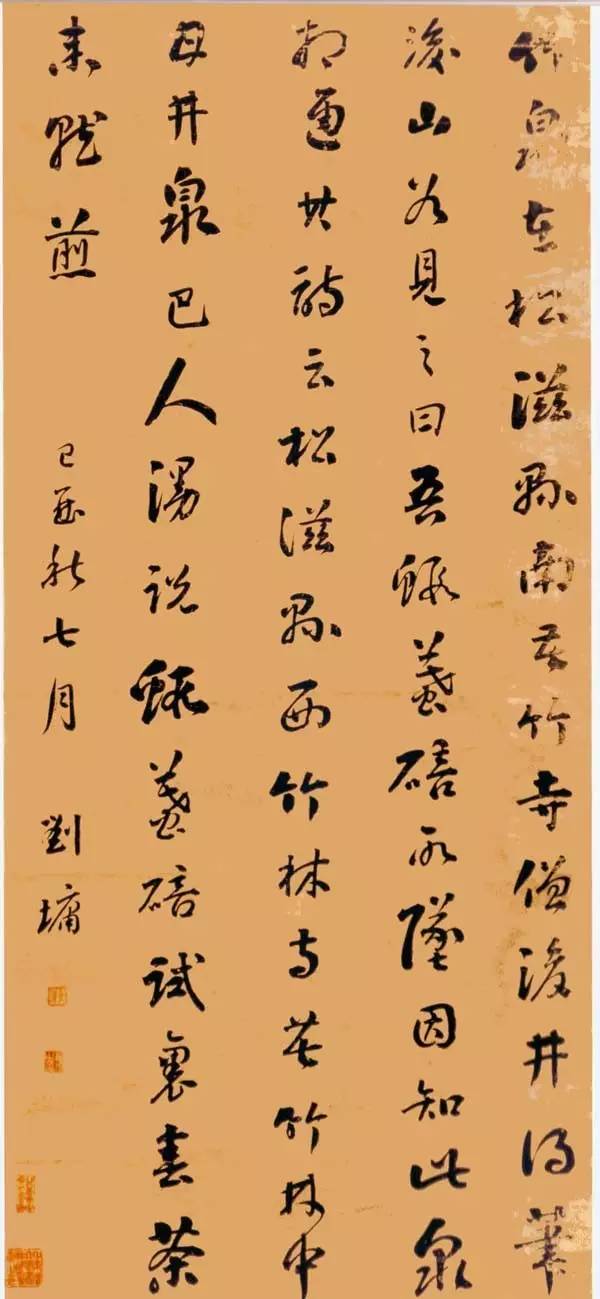 竹泉在松滋縣南苦竹寺僧浚井得筆
後山谷見之曰吾蝦蟇碚所墜因知此泉
相通其詩云松滋縣西竹林寺苦竹林中
甘井泉巴人漫說蝦蟇碚試裹春茶
來就煎
己酉秋七月 劉墉